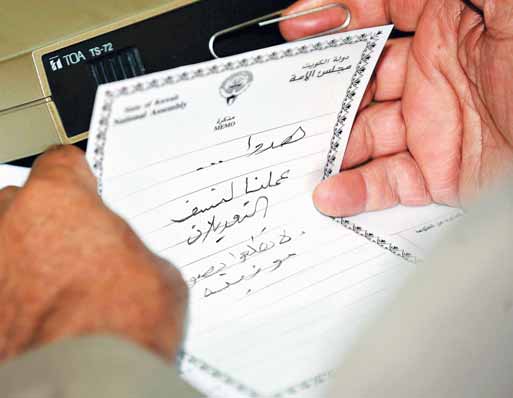 TOA TS-72
State of Kuwait
National Assembly
دولة الكويت
مجلس الأمة
مذكرة
MEMO
اهدوا ...
عملنا لنسف
التعديلات
لا